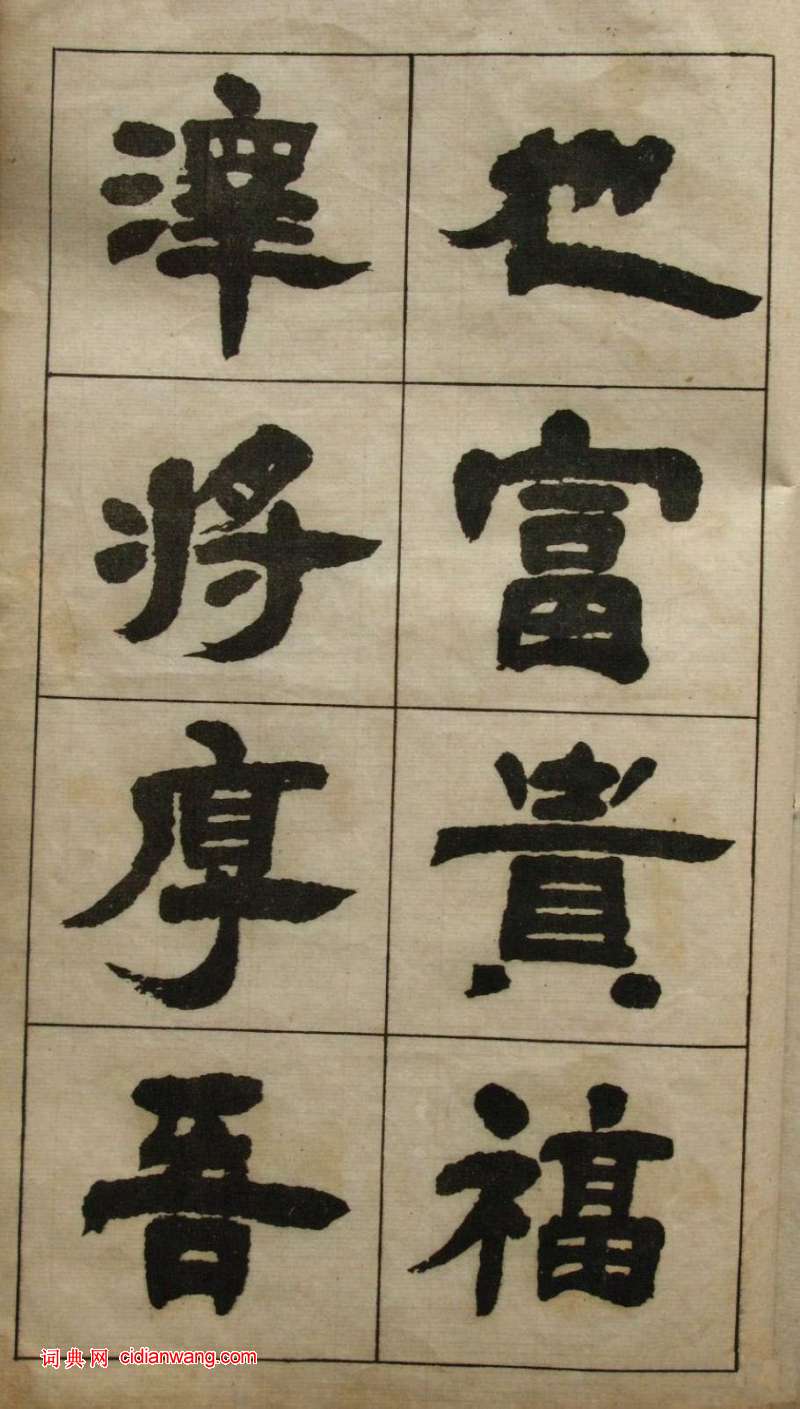 也富貴福
澤將厚吾
词典网 cidianwang.com